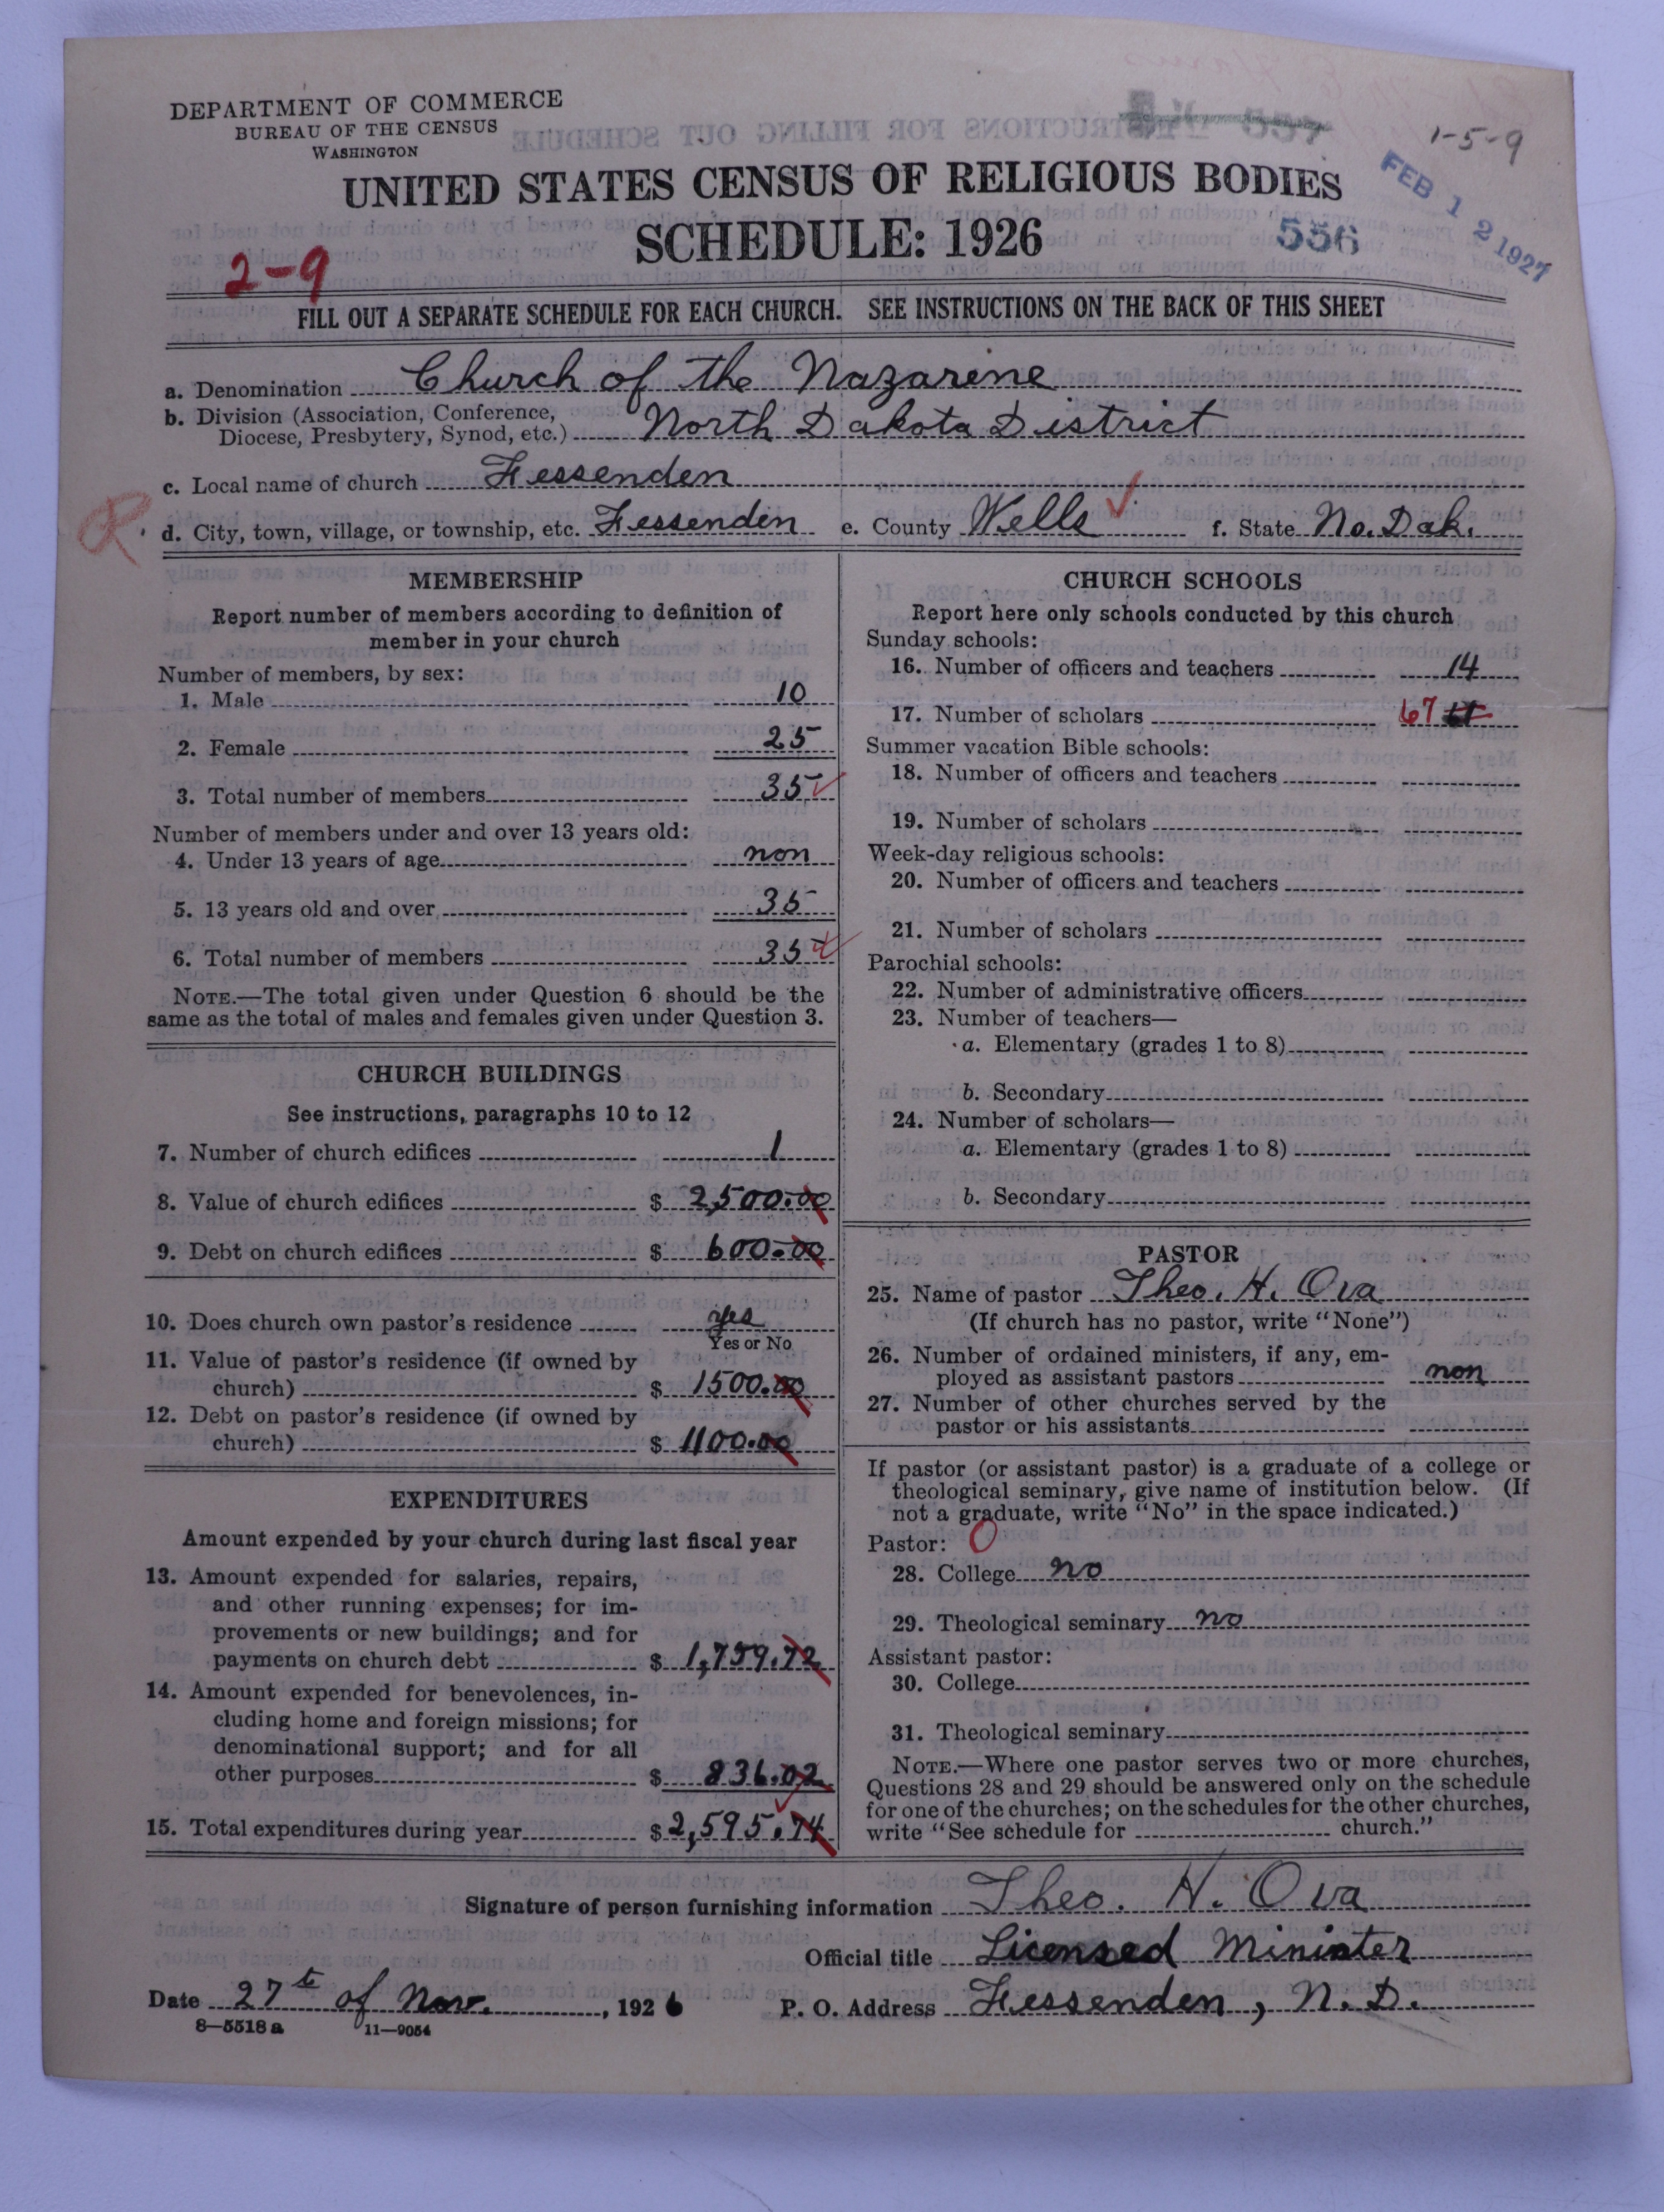 DEPARTMENT OF COMMERCE
BUREAU OF THE CENSUS
WASHINGTON
1-5-9
UNITED STATES CENSUS OF RELIGIOUS BODIES
FEB 12 1927
SCHEDULE: 1926
556
2-9
FILL OUT A SEPARATE SCHEDULE FOR EACH CHURCH. SEE INSTRUCTIONS ON THE BACK OF THIS SHEET
a. Denomination Church of the Nazarene
b. Division (Association, Conference,
Diocese, Presbytery, Synod, etc.) North Dakota District
c. Local name of church Fessenden
R
d. City, town, village, or township, etc. Fessenden e. County Wells f. State No. Dak.
MEMBERSHIP
Report number of members according to definition of
member in your church
Number of members, by sex:
1. Male 10
2. Female 25
3. Total number of members 35
Number of members under and over 13 years old:
4. Under 13 years of age non
5. 13 years old and over 35
6. Total number of members 35
NOTE.—The total given under Question 6 should be the
same as the total of males and females given under Question 3.
CHURCH BUILDINGS
See instructions, paragraphs 10 to 12
7. Number of church edifices 1
8. Value of church edifices $ 2,500.00
9. Debt on church edifices $ 600.00
10. Does church own pastor's residence yes
Yes or No
11. Value of pastor's residence (if owned by
church) $ 1500.00
12. Debt on pastor's residence (if owned by
church) $ 1100.00
EXPENDITURES
Amount expended by your church during last fiscal year
13. Amount expended for salaries, repairs,
and other running expenses; for im-
provements or new buildings; and for
payments on church debt $ 1,759.72
14. Amount expended for benevolences, in-
cluding home and foreign missions; for
denominational support; and for all
other purposes $ 836.02
15. Total expenditures during year $ 2,595.74
CHURCH SCHOOLS
Report here only schools conducted by this church
Sunday schools:
16. Number of officers and teachers 14
17. Number of scholars 67
Summer vacation Bible schools:
18. Number of officers and teachers
19. Number of scholars
Week-day religious schools:
20. Number of officers and teachers
21. Number of scholars
Parochial schools:
22. Number of administrative officers
23. Number of teachers—
a. Elementary (grades 1 to 8)
b. Secondary
24. Number of scholars—
a. Elementary (grades 1 to 8)
b. Secondary
PASTOR
25. Name of pastor Theo. H. Ova
(If church has no pastor, write "None")
26. Number of ordained ministers, if any, em-
ployed as assistant pastors non
27. Number of other churches served by the
pastor or his assistants
If pastor (or assistant pastor) is a graduate of a college or
theological seminary, give name of institution below. (If
not a graduate, write "No" in the space indicated.)
Pastor: O
28. College no
29. Theological seminary no
Assistant pastor:
30. College
31. Theological seminary
NOTE.—Where one pastor serves two or more churches,
Questions 28 and 29 should be answered only on the schedule
for one of the churches; on the schedules for the other churches,
write "See schedule for church."
Signature of person furnishing information Theo. H. Ova
Official title Licensed Minister
Date 27th of Nov., 1926 P. O. Address Fessenden, N. D.
8—5518a 11—9054